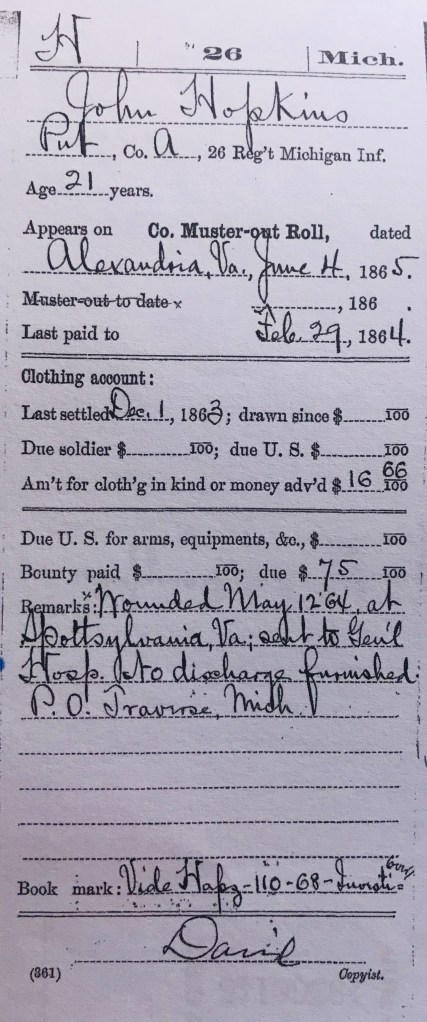 H | 26 | Mich.
John Hopkins
Pvt, Co. A, 26 Reg't Michigan Inf.
Age 21 years.
Appears on Co. Muster-out Roll, dated
Alexandria, Va., June 4, 1865.
Muster-out to date x , 186 .
Last paid to Feb. 29, 1864.
Clothing account:
Last settled Dec. 1, 1863; drawn since $ 100
Due soldier $ 100; due U. S. $ 100
Am't for cloth'g in kind or money adv'd $ 16 66/100
Due U. S. for arms, equipments, &c., $ 100
Bounty paid $ 100; due $ 75 100
Remarks: x Wounded May 12 '64, at
Spottsylvania, Va; sent to Gen'l
Hosp. No discharge furnished.
P.O. Traverse, Mich.
Book mark: Vide -110-68-
(361) Copyist.